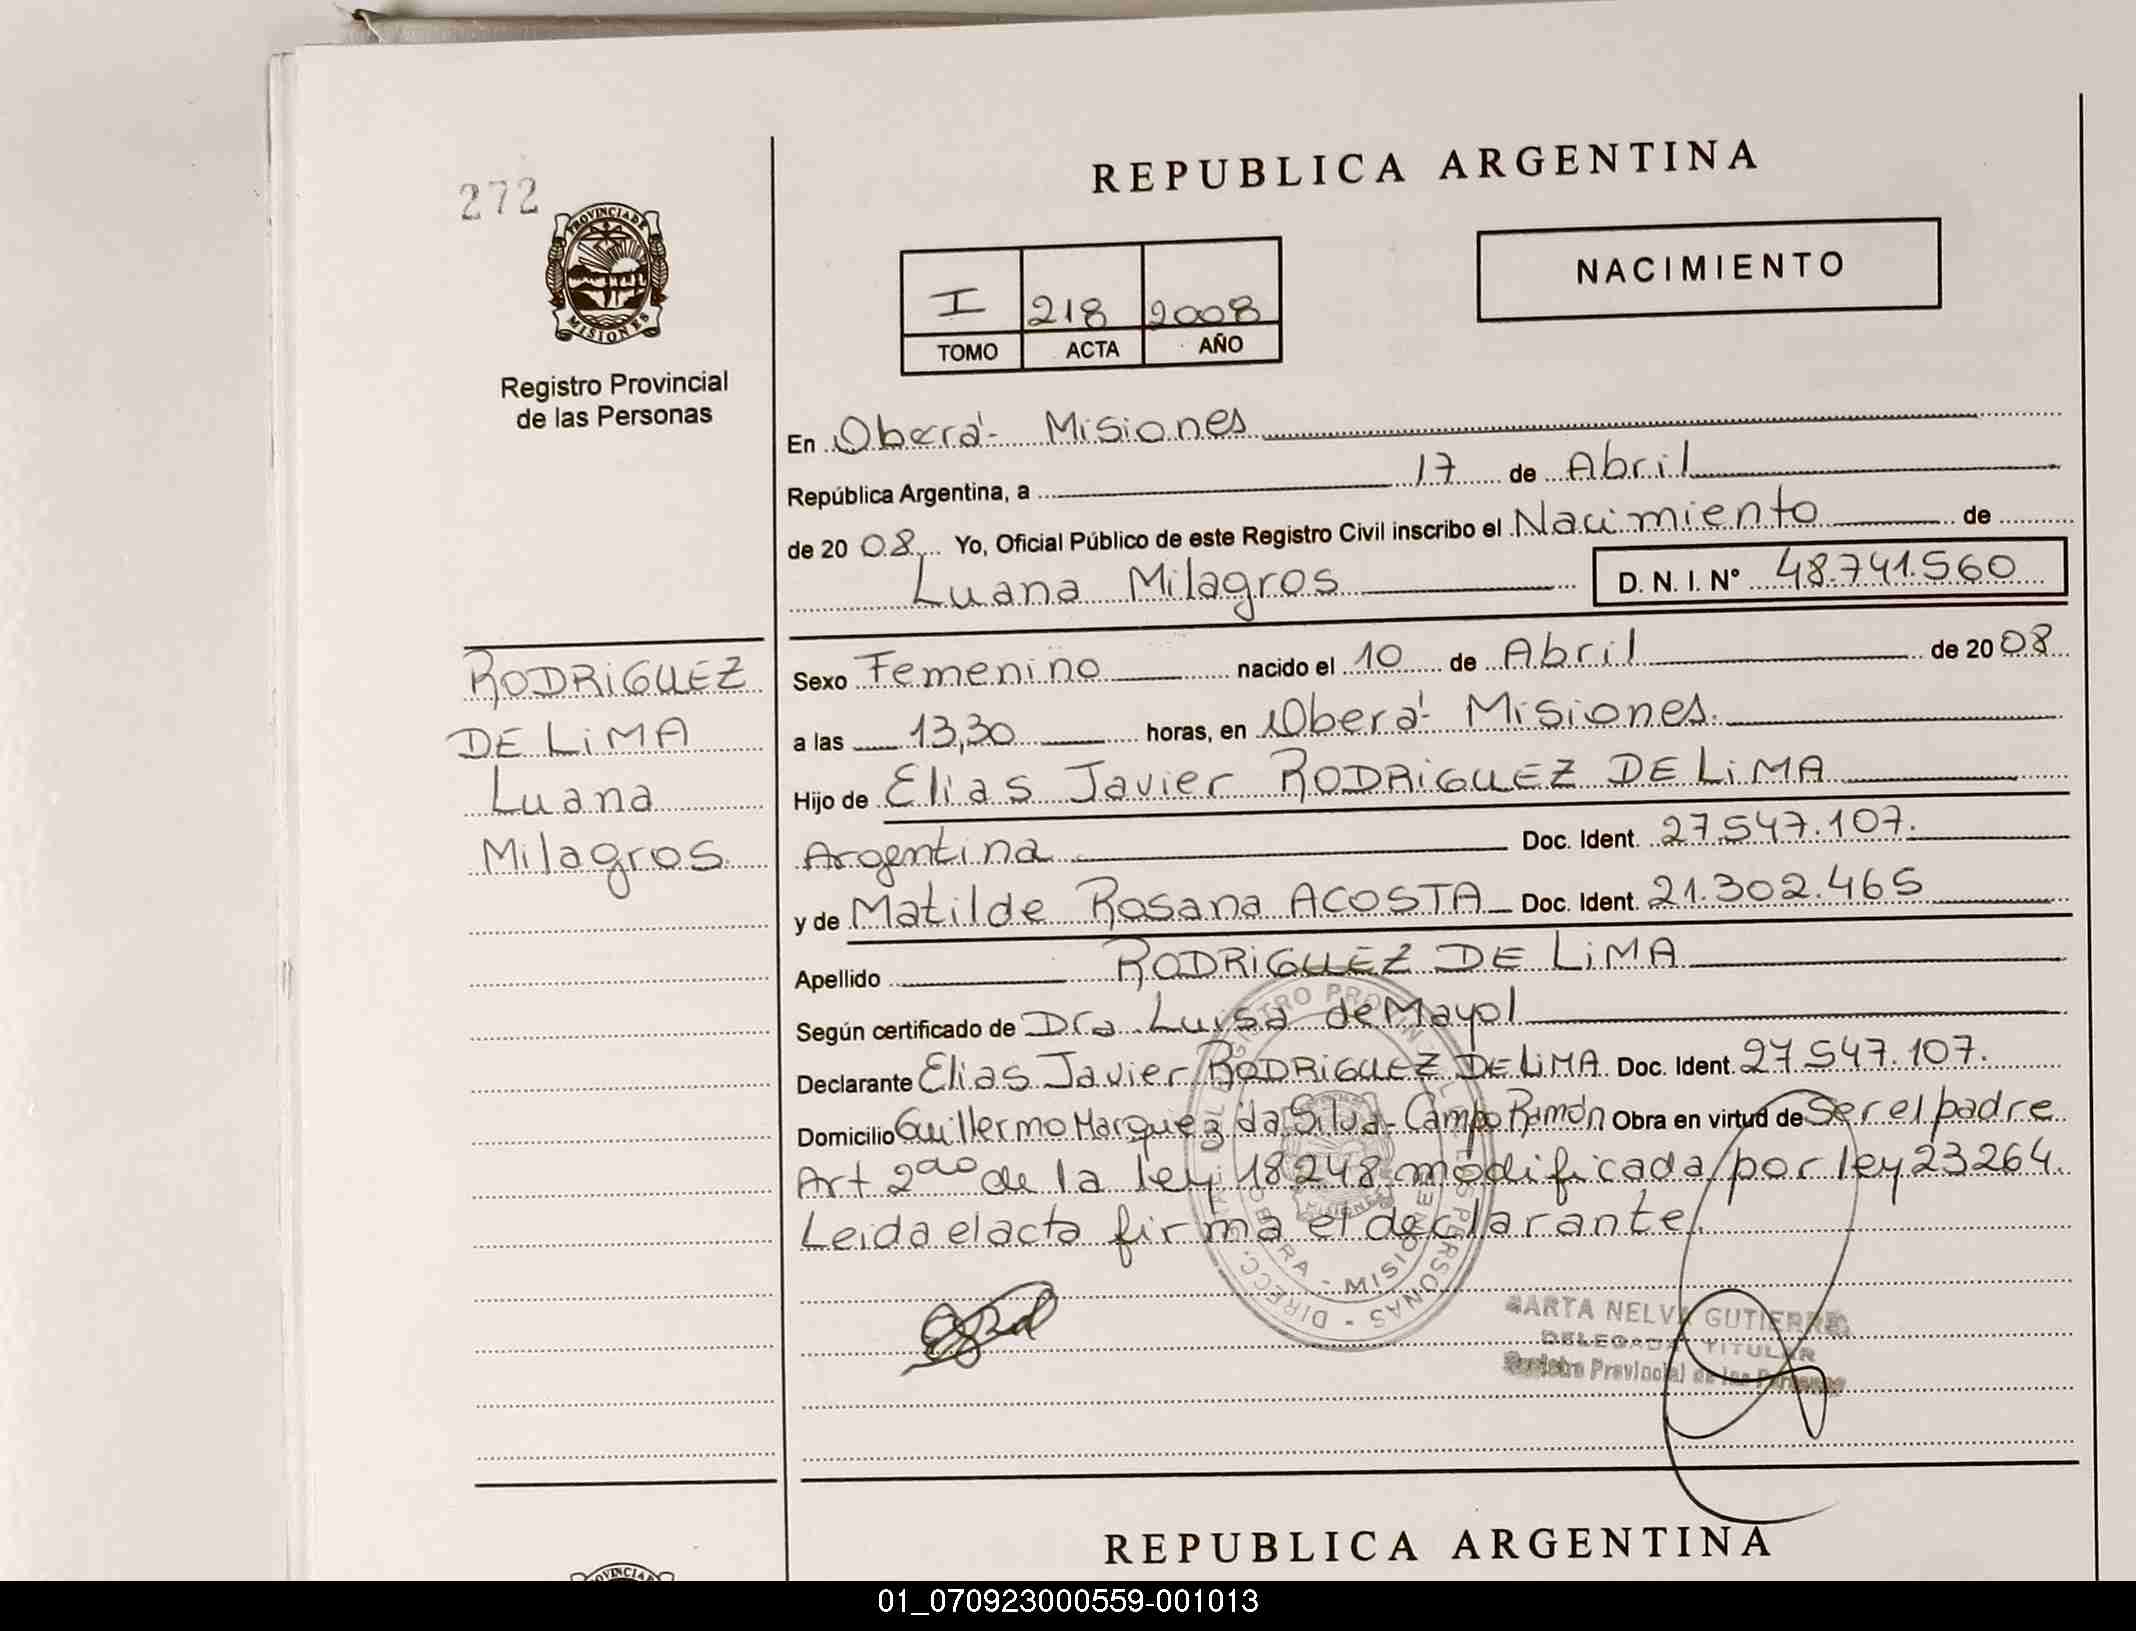 272
PROVINCIA DE
MISIONES
Registro Provincial
de las Personas
RODRIGUEZ
DE LIMA
Luana
Milagros
REPUBLICA ARGENTINA
I 218 2008
TOMO ACTA AÑO
NACIMIENTO
En Oberá- Misiones
República Argentina, a 17 de Abril
de 20 08 Yo, Oficial Público de este Registro Civil inscribo el Nacimiento de
Luana Milagros D. N. I. N° 48.741.560
Sexo Femenino nacido el 10 de Abril de 20 08
a las 13,30 horas, en Oberá- Misiones.
Hijo de Elias Javier RODRIGUEZ DE LIMA
Argentina Doc. Ident. 27.547.107.
y de Matilde Rosana ACOSTA Doc. Ident. 21.302.465
Apellido RODRIGUEZ DE LIMA
Según certificado de Dra Luisa de Mayol
Declarante Elias Javier RODRIGUEZ DE LIMA. Doc. Ident. 27.547.107.
Domicilio Guillermo Marquez da Silva- Campo Ramón Obra en virtud de Ser el padre
Art 2do de la ley 18248 modificada por ley 23264.
Leida el acta firma el declarante.
OBERA - MISIONES
MARTA NELVA GUTIERREZ
DELEGADA TITULAR
Registro Provincial de las Personas
REPUBLICA ARGENTINA
01_070923000559-001013